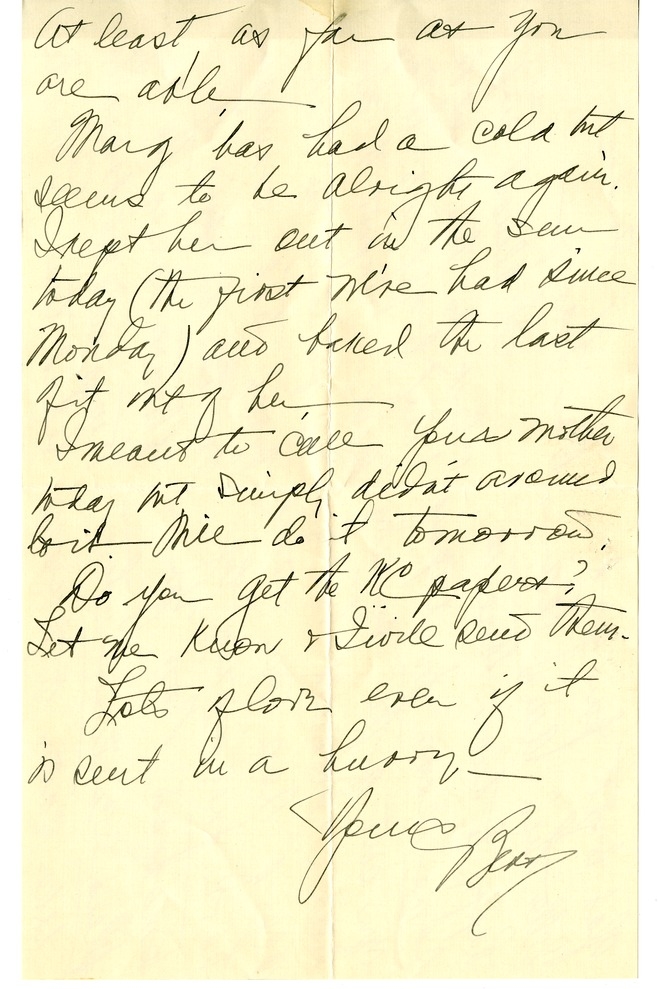 At least, as far as you
are able.
Marg has had a cold but
seems to be alright again.
I kept her out in the sun
today (the first we've had since
Monday) and baked the last
bit out of her.
I meant to call your mother
today but simply didn't around
to it. Will do it tomorrow.
Do you get the KC papers?
Let me know & I will send them.
Lots of love even if it
is sent in a hurry—
Yours Bess